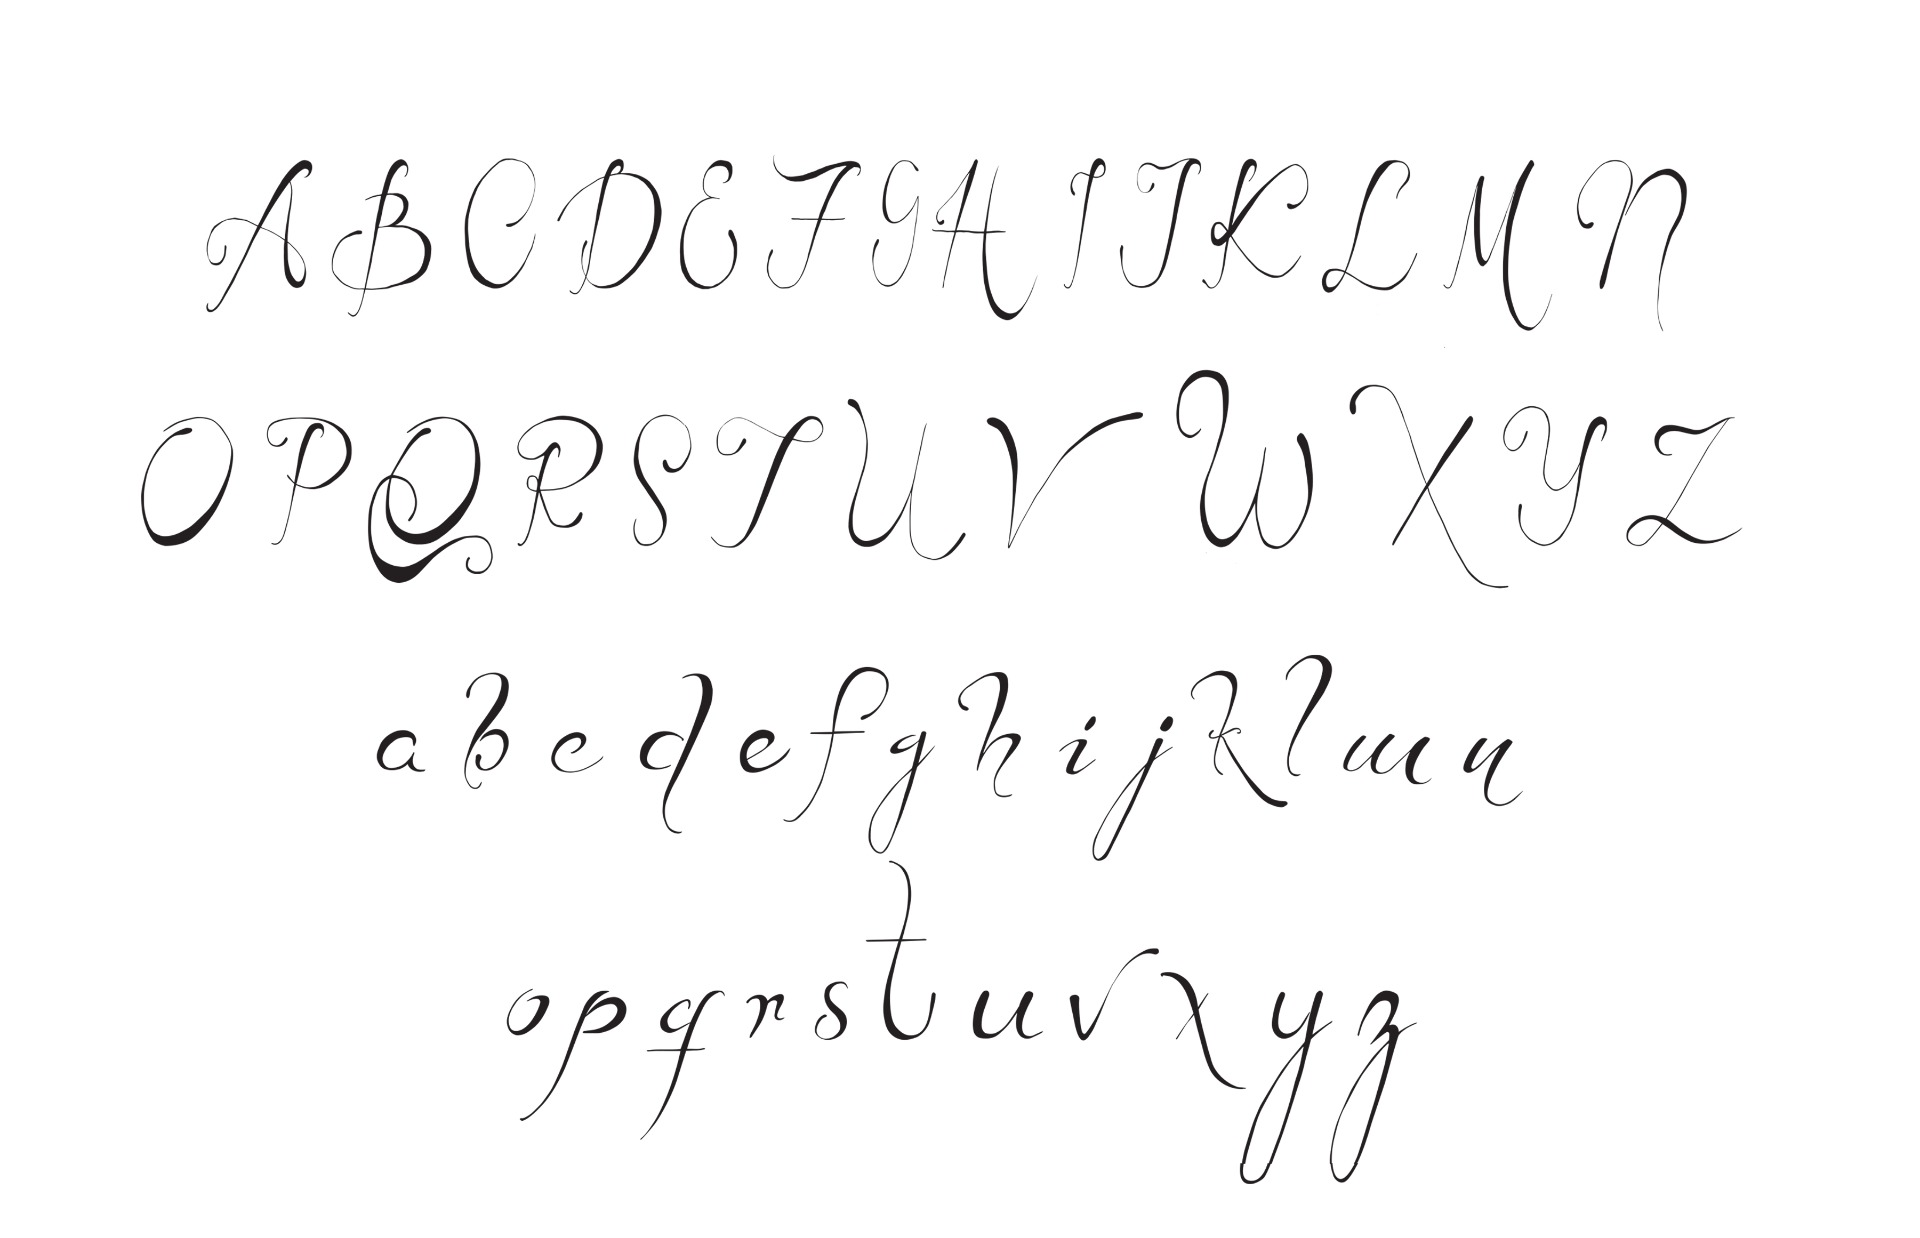 A B C D E F G H I J K L M N
O P Q R S T U V W X Y Z
a b c d e f g h i j k l m n
o p q r s t u v x y z